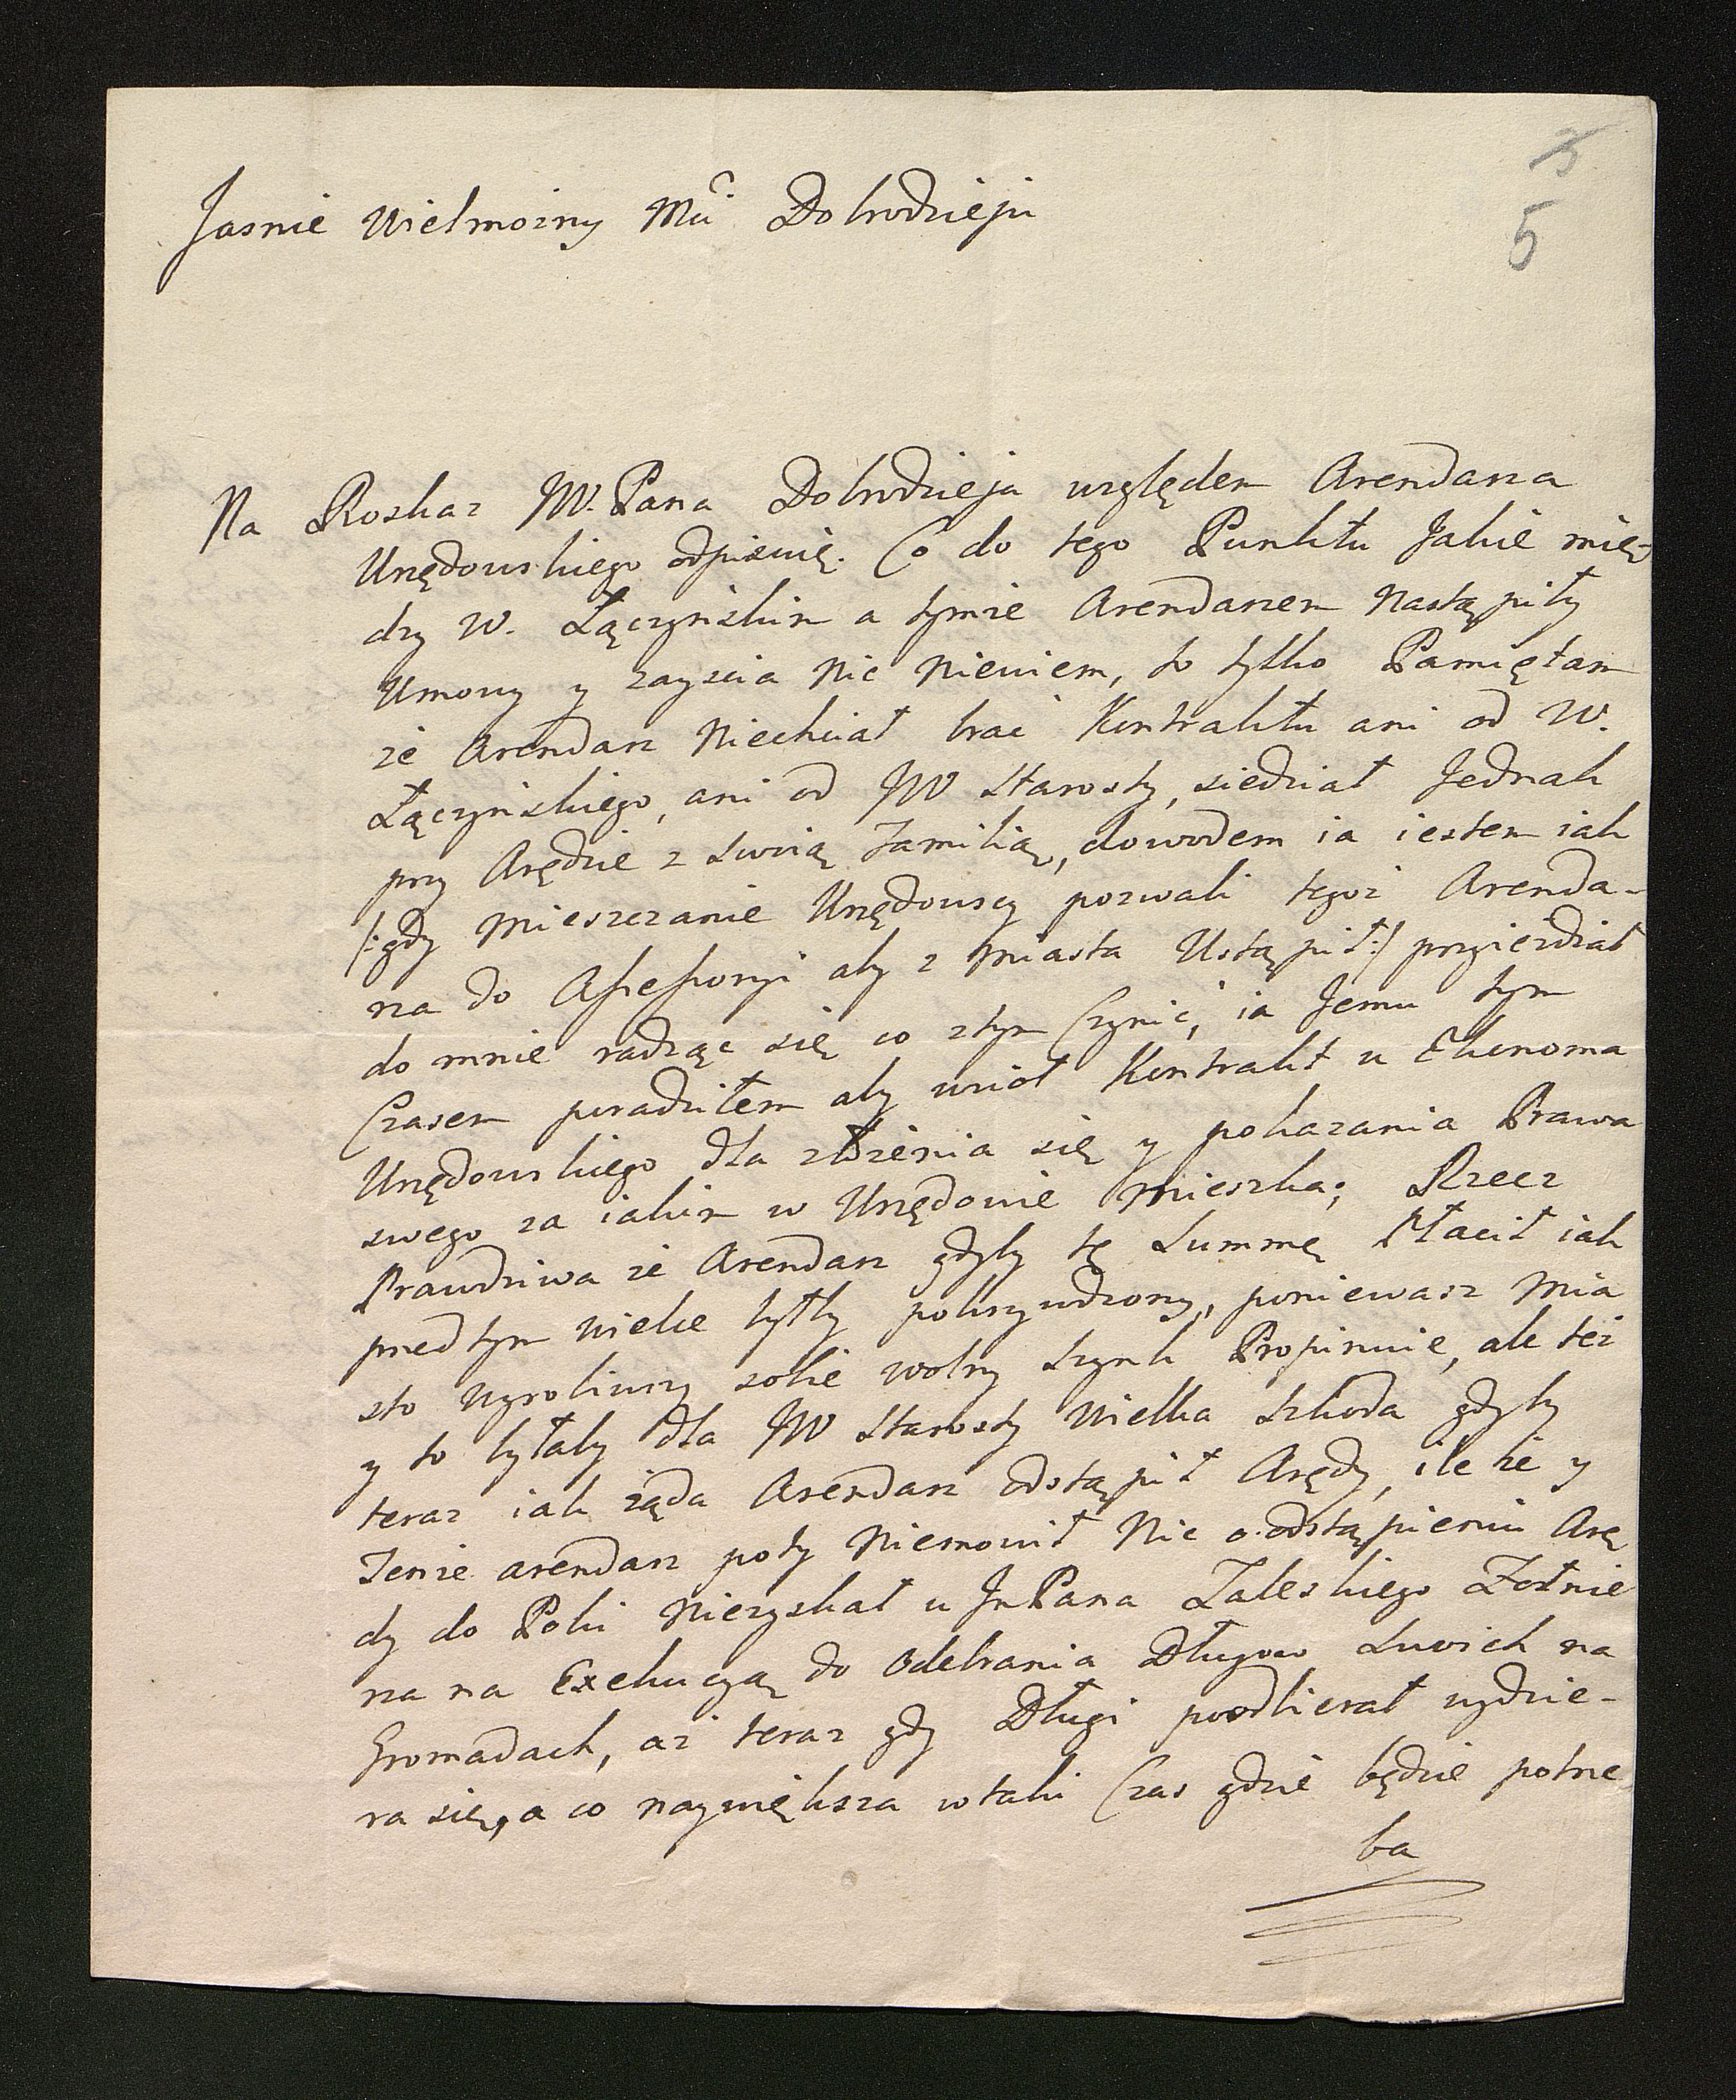 5
5
Jasnie Wielmożny Mci Dobrodzieju
Na Roskaz JW. Pana Dobrodzieja względem Arendarza
Urzędowskiego odpisuię. Co do tego Punktu Jakie mię-
dzy W. Łączyńskim a tymże Arendarzem nastąpiły
Umowy y zayscia nic niewiem, to tylko Pamiętam
że Arendarz niechciał brać Kontraktu ani od W.
Łączyńskiego, ani od JW Starosty, siedział Jednak
przy Arędzie z swoią Familią, dowodem ia iestem iak
/:gdy Mieszczanie Urzędowscy pozwali tegoż Arenda-
rza do Assessoryi aby z Miasta Ustąpił:/ przyieżdżał
do mnie radząc się co ztym Czynić, ia Jemu tym
Czasem poradziłem aby wzioł Kontrakt u Ekonoma
Urzędowskiego dla złożenia się y pokazania Prawa
swego za iakim w Urzędowie mieszka; Rzecz
Prawdziwa że Arendarz gdyby tę Summę Płacił iak
przedtym wiele byłby pokrzywdzony, poniewasz Mia
sto wyrobiwszy sobie wolny Szynk Propinuie, ale też
y to byłaby dla JW Starosty Wielka Szkoda gdyby
teraz iak żąda Arendarz odstąpił Arędy, ile że y
Tenże arendarz poty niemowił nic o odstąpieniu Arę
dy do Poki niezyskał u Jm Pana Zaleskiego Żołnie
rza na Exekucyą do Odebrania Długow Swoich na
Gromadach, aż teraz gdy Długi poodbierał wydzie-
ra się, a co naywiększa w taki Czas gdzie będzie potrze
ba